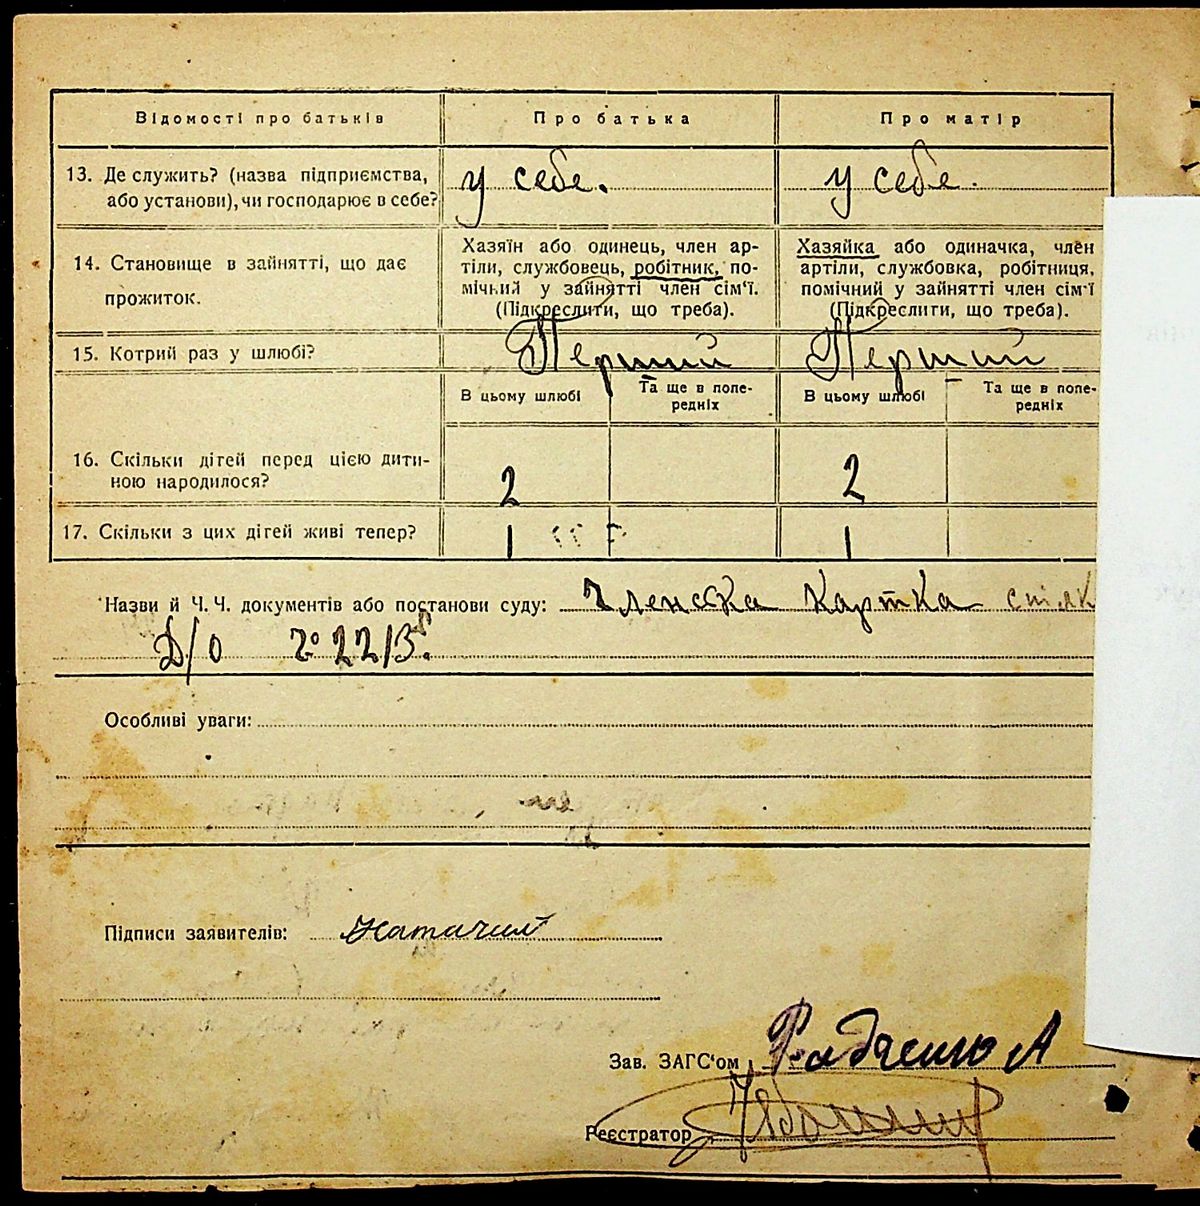 Відомості про батьків Про батька Про матір
13. Де служить? (назва підприємства, у себе. у себе.
або установи), чи господарює в себе?
Хазяїн або одинець, член ар- Хазяйка або одиначка, член
14. Становище в зайнятті, що дає тіли, службовець, робітник, по- артіли, службовка, робітниця,
прожиток. мічний у зайнятті член сім'ї. помічний у зайнятті член сім'ї
(Підкреслити, що треба). (Підкреслити, що треба).
15. Котрий раз у шлюбі? Перший Перший
В цьому шлюбі Та ще в попе- В цьому шлюбі Та ще в попе-
редніх редніх
16. Скільки дітей перед цією дити- 2 2
ною народилося?
17. Скільки з цих дітей живі тепер? 1 1
Назви й Ч. Ч. документів або постанови суду: Членска Картка
Д/о 2213
Особливі уваги:
Підписи заявителів:
Зав. ЗАГС'ом Радченко А
Реєстратор